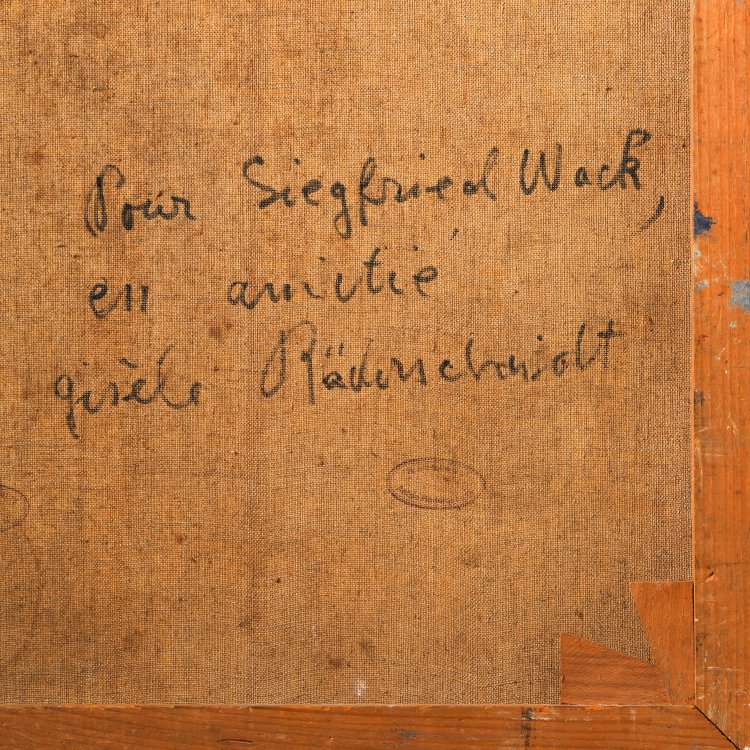 Pour Siegfried Wack,
en amitié
gisèle Räderscheidt